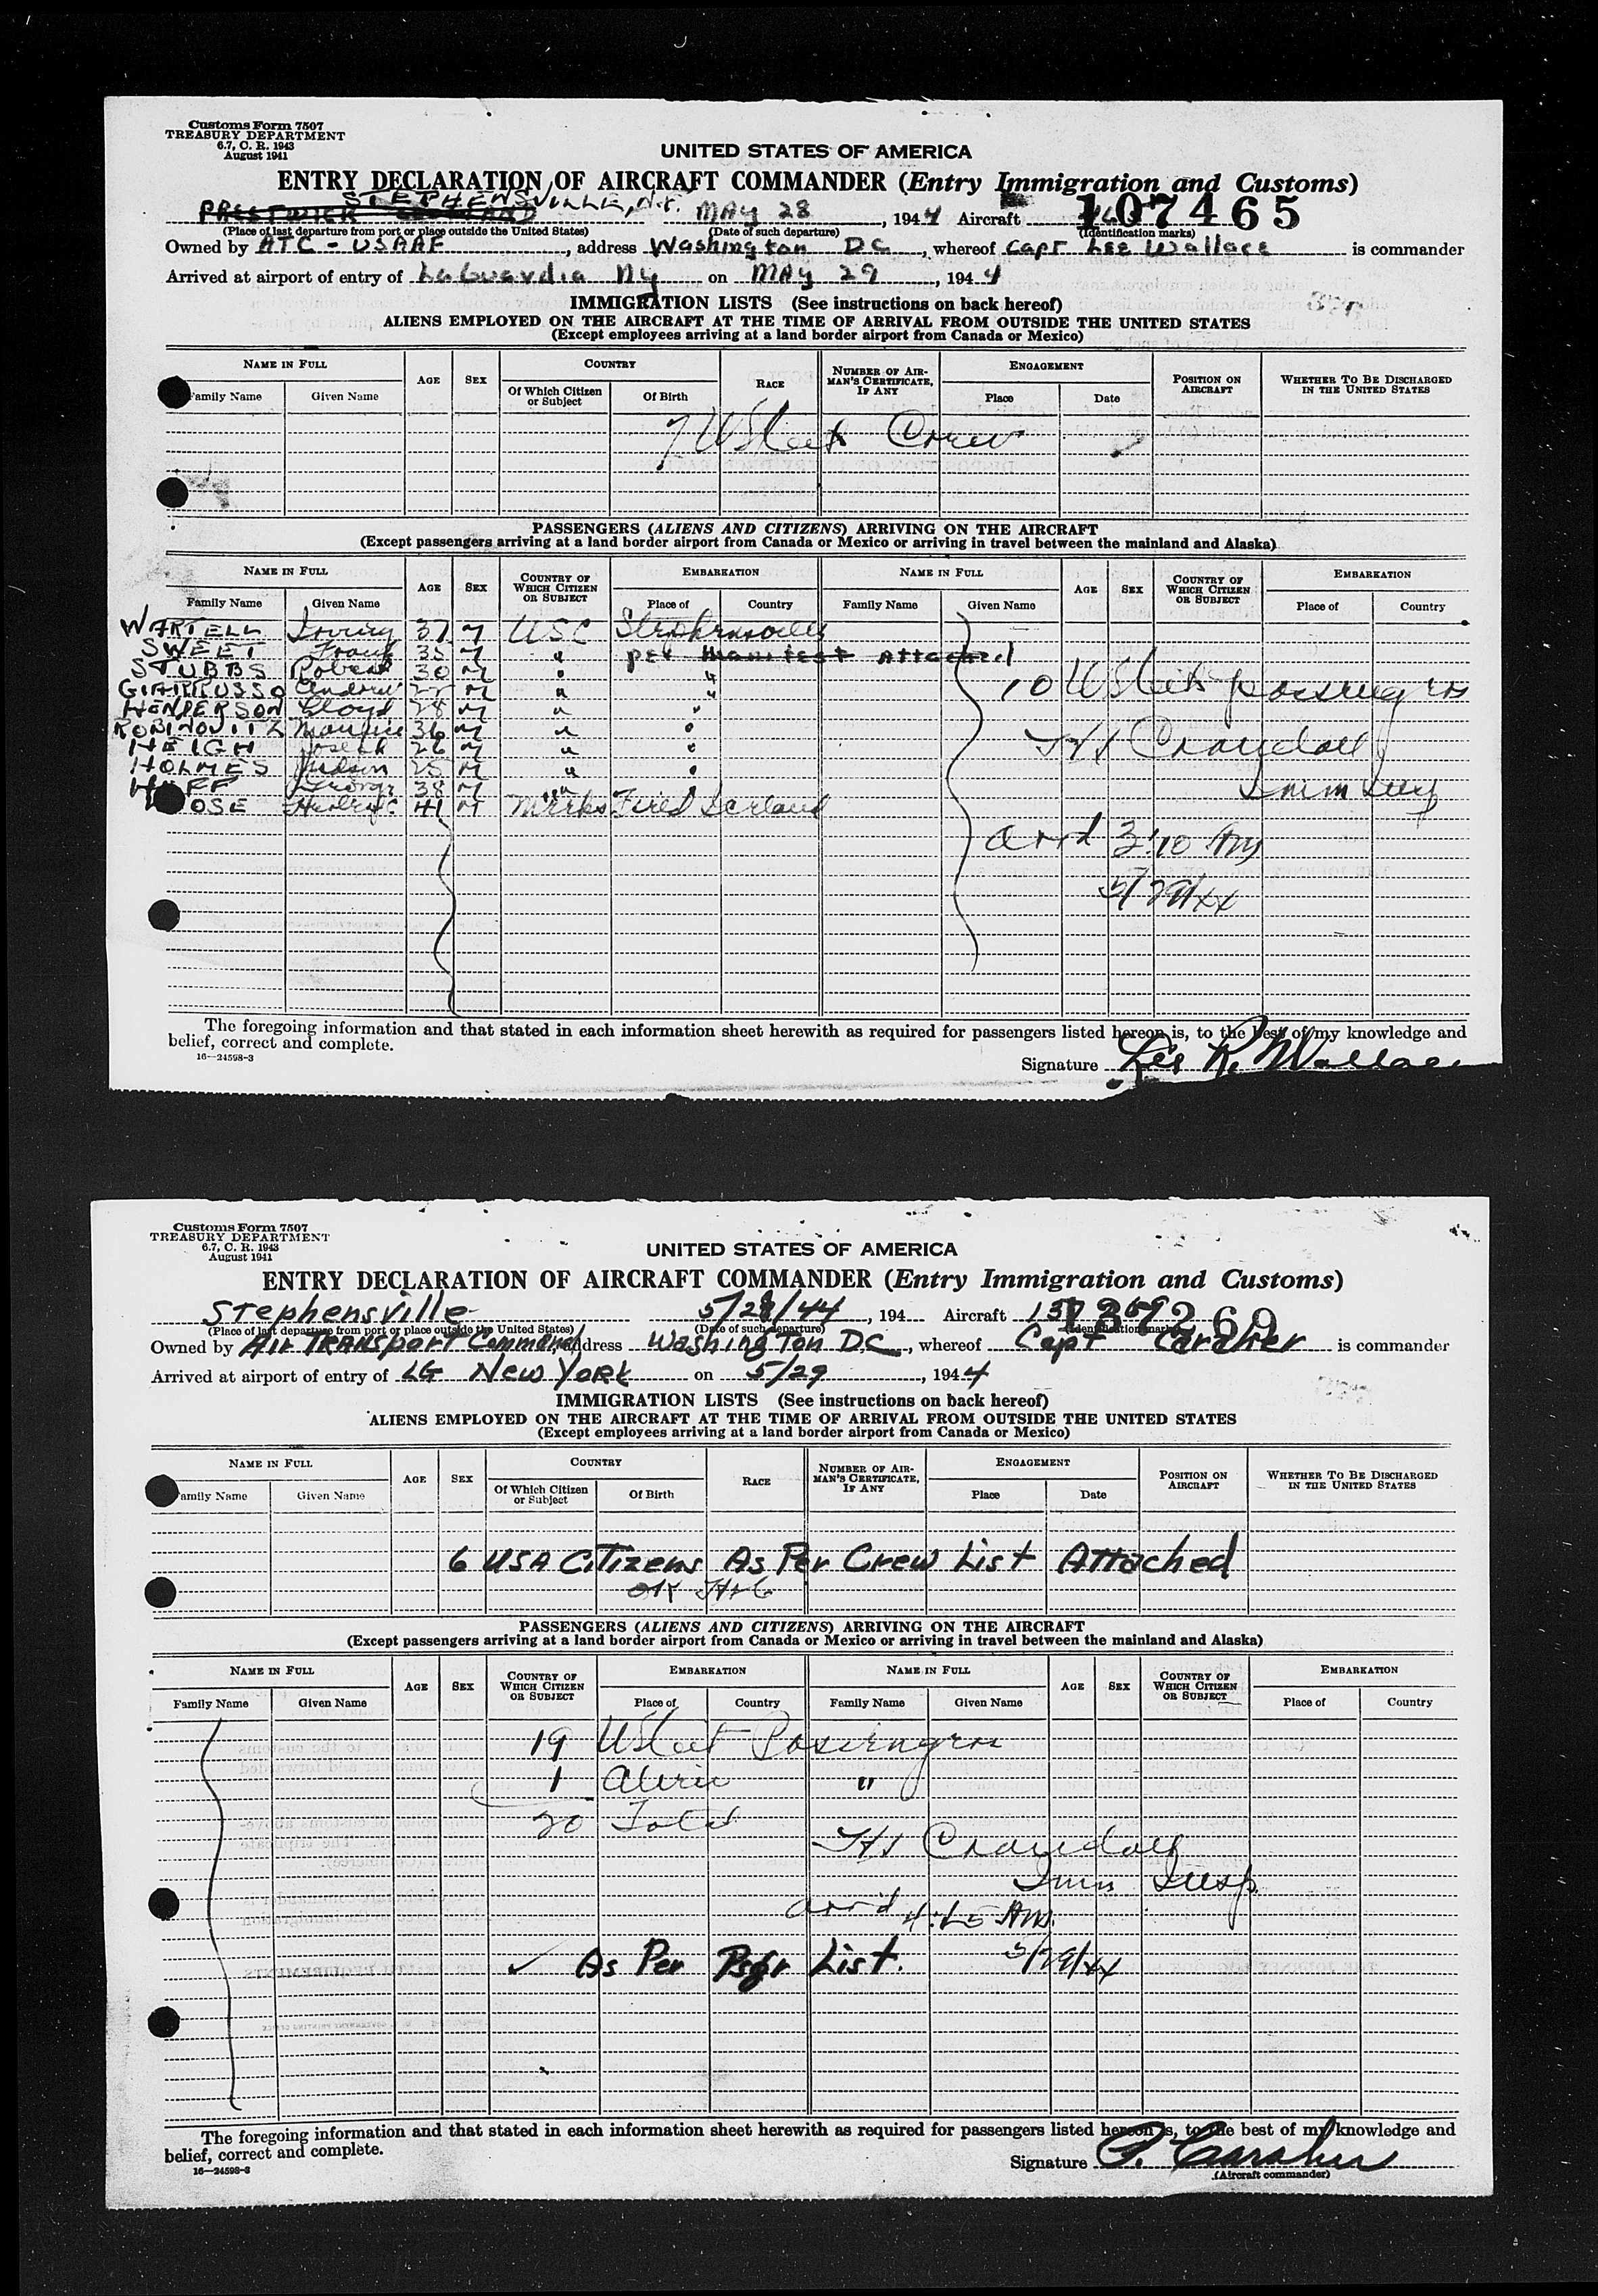 Customs Form 7507
TREASURY DEPARTMENT
6.7, C. R. 1943
August 1941
UNITED STATES OF AMERICA
ENTRY DECLARATION OF AIRCRAFT COMMANDER (Entry Immigration and Customs)
STEPHENSVILLE, N.F.
PRESTWICK SCOTLAND MAY 28, 1944 Aircraft 107465
(Place of last departure from port or place outside the United States) (Date of such departure) (Identification marks)
Owned by ATC - USAAF, address Washington DC, whereof Capt Lee Wallace is commander
Arrived at airport of entry of LaGuardia NY on MAY 29, 1944
IMMIGRATION LISTS (See instructions on back hereof)
ALIENS EMPLOYED ON THE AIRCRAFT AT THE TIME OF ARRIVAL FROM OUTSIDE THE UNITED STATES
(Except employees arriving at a land border airport from Canada or Mexico)
NAME IN FULL AGE SEX COUNTRY RACE NUMBER OF AIRMAN'S CERTIFICATE, IF ANY ENGAGEMENT POSITION ON AIRCRAFT WHETHER TO BE DISCHARGED IN THE UNITED STATES
Family Name Given Name Of Which Citizen or Subject Of Birth Place Date
7 US Cit Crew
PASSENGERS (ALIENS AND CITIZENS) ARRIVING ON THE AIRCRAFT
(Except passengers arriving at a land border airport from Canada or Mexico or arriving in travel between the mainland and Alaska)
NAME IN FULL AGE SEX COUNTRY OF WHICH CITIZEN OR SUBJECT EMBARKATION NAME IN FULL AGE SEX COUNTRY OF WHICH CITIZEN OR SUBJECT EMBARKATION
Family Name Given Name Place of Country Family Name Given Name Place of Country
WARTELL Irving 37 M USC Stephensville
SWEET Frank 35 M " per manifest attached
STUBBS Robert 30 M " "
GIARRUSSO Andrew M " "
HENDERSON Lloyd 28 M " "
ROBINOVITZ Maurice 36 M " "
HEIGH Joseph 26 M " "
HOLMES Judson 25 M " "
HUFF George 38 M " "
OSE 41 M Meeks Field Iceland
10 US Cit passengers
JHS Crandall
Imm Insp
arrd 3:10 AM
5/29/44
The foregoing information and that stated in each information sheet herewith as required for passengers listed hereon is, to the best of my knowledge and
belief, correct and complete.
16—24598-3
Signature Lee R. Wallace
Customs Form 7507
TREASURY DEPARTMENT
6.7, C. R. 1943
August 1941
UNITED STATES OF AMERICA
ENTRY DECLARATION OF AIRCRAFT COMMANDER (Entry Immigration and Customs)
Stephensville 5/28/44, 194 Aircraft 137269
(Place of last departure from port or place outside the United States) (Date of such departure) (Identification marks)
Owned by Air Transport Command, address Washington D.C., whereof Capt Caraher is commander
Arrived at airport of entry of LG New York on 5/29, 1944
IMMIGRATION LISTS (See instructions on back hereof)
ALIENS EMPLOYED ON THE AIRCRAFT AT THE TIME OF ARRIVAL FROM OUTSIDE THE UNITED STATES
(Except employees arriving at a land border airport from Canada or Mexico)
NAME IN FULL AGE SEX COUNTRY RACE NUMBER OF AIRMAN'S CERTIFICATE, IF ANY ENGAGEMENT POSITION ON AIRCRAFT WHETHER TO BE DISCHARGED IN THE UNITED STATES
Family Name Given Name Of Which Citizen or Subject Of Birth Place Date
6 USA Citizens As Per Crew List Attached
OK
PASSENGERS (ALIENS AND CITIZENS) ARRIVING ON THE AIRCRAFT
(Except passengers arriving at a land border airport from Canada or Mexico or arriving in travel between the mainland and Alaska)
NAME IN FULL AGE SEX COUNTRY OF WHICH CITIZEN OR SUBJECT EMBARKATION NAME IN FULL AGE SEX COUNTRY OF WHICH CITIZEN OR SUBJECT EMBARKATION
Family Name Given Name Place of Country Family Name Given Name Place of Country
19 US Cit Passengers
1 Alien "
20 Total
JHS Crandall
Imm Insp.
arr'd 4:15 AM.
As Per Psgr List. 5/29/44
The foregoing information and that stated in each information sheet herewith as required for passengers listed hereon is, to the best of my knowledge and
belief, correct and complete.
16—24598-3
Signature P. Caraher
(Aircraft commander)